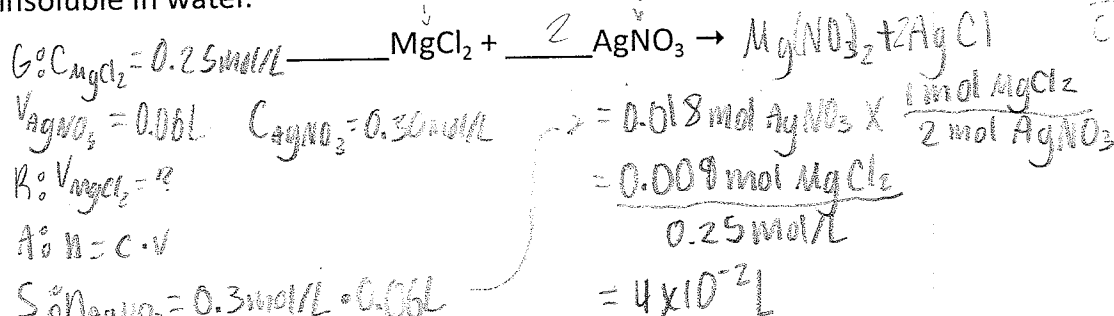 insoluble in water.
____MgCl₂ + 2 AgNO₃ → Mg(NO₃)₂ + 2AgCl
G: C MgCl₂ = 0.25mol/L
V AgNO₃ = 0.06L C AgNO₃ = 0.30mol/L
R: V MgCl₂ = ?
A: n = c·V
S: n AgNO₃ = 0.3mol/L · 0.06L
= 0.018 mol AgNO₃ X 1 mol MgCl₂
2 mol AgNO₃
= 0.009 mol MgCl₂
0.25mol/L
= 4x10⁻²L